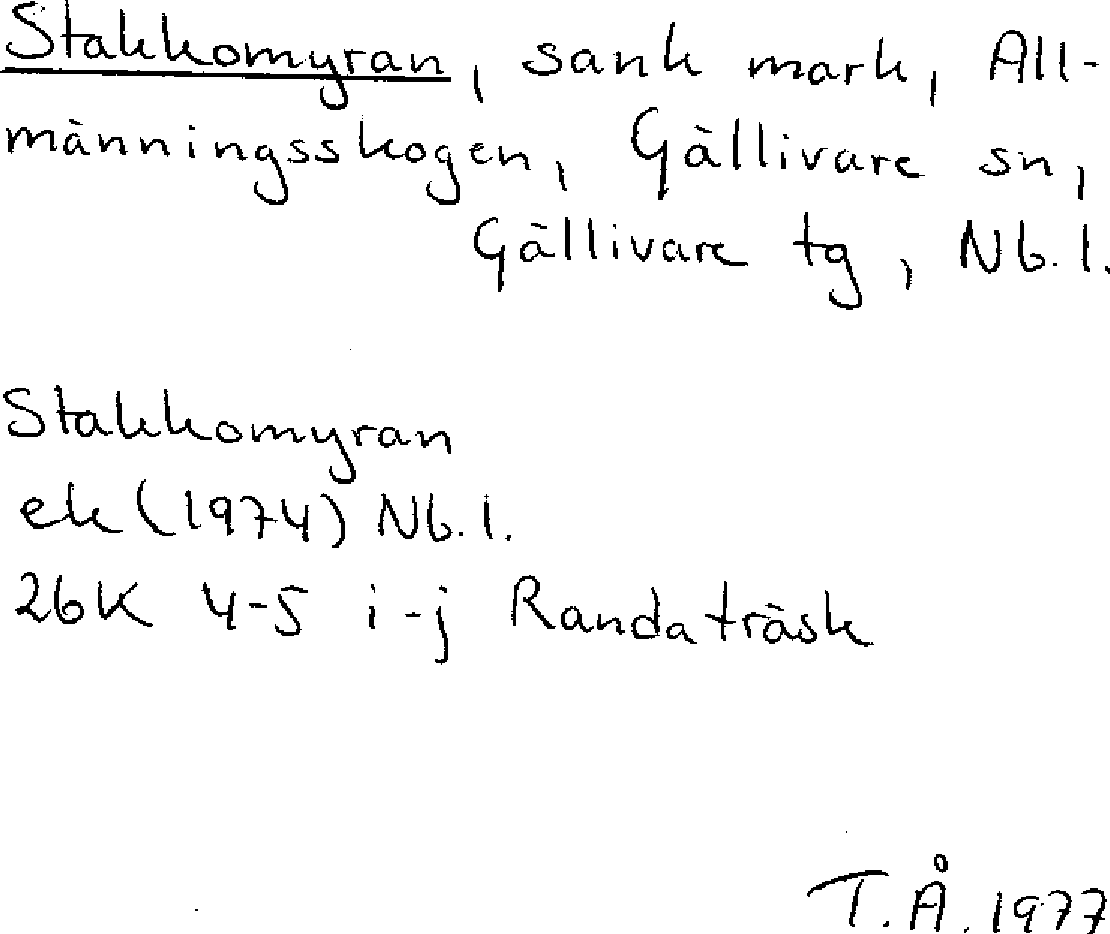 Stakkomyran, sank mark, All-
männingsskogen, Gällivare sn,
Gällivare tg, Nb. l.
Stakkomyran
ek (1974) Nb. l.
26K 4-5 i-j Randaträsk
T.Å. 1977